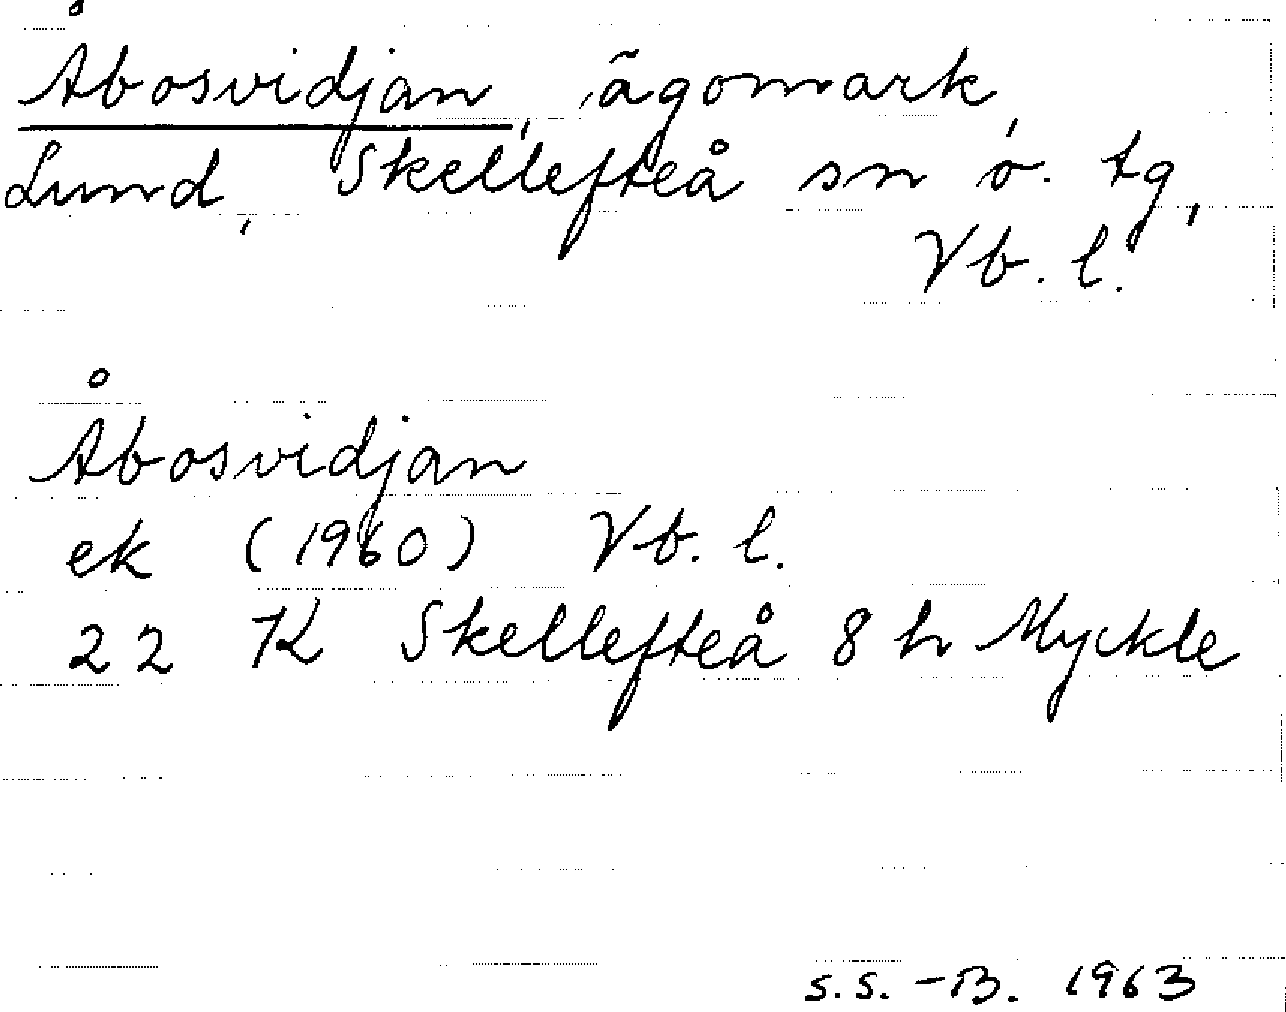 Åbosvidjan, ägomark,
Lund, Skellefteå sn ö. tg,
Vb. l.
Åbosvidjan
ek (1960) Vb. l.
22 K Skellefteå 8 h Myckle
S.S. -B. 1963